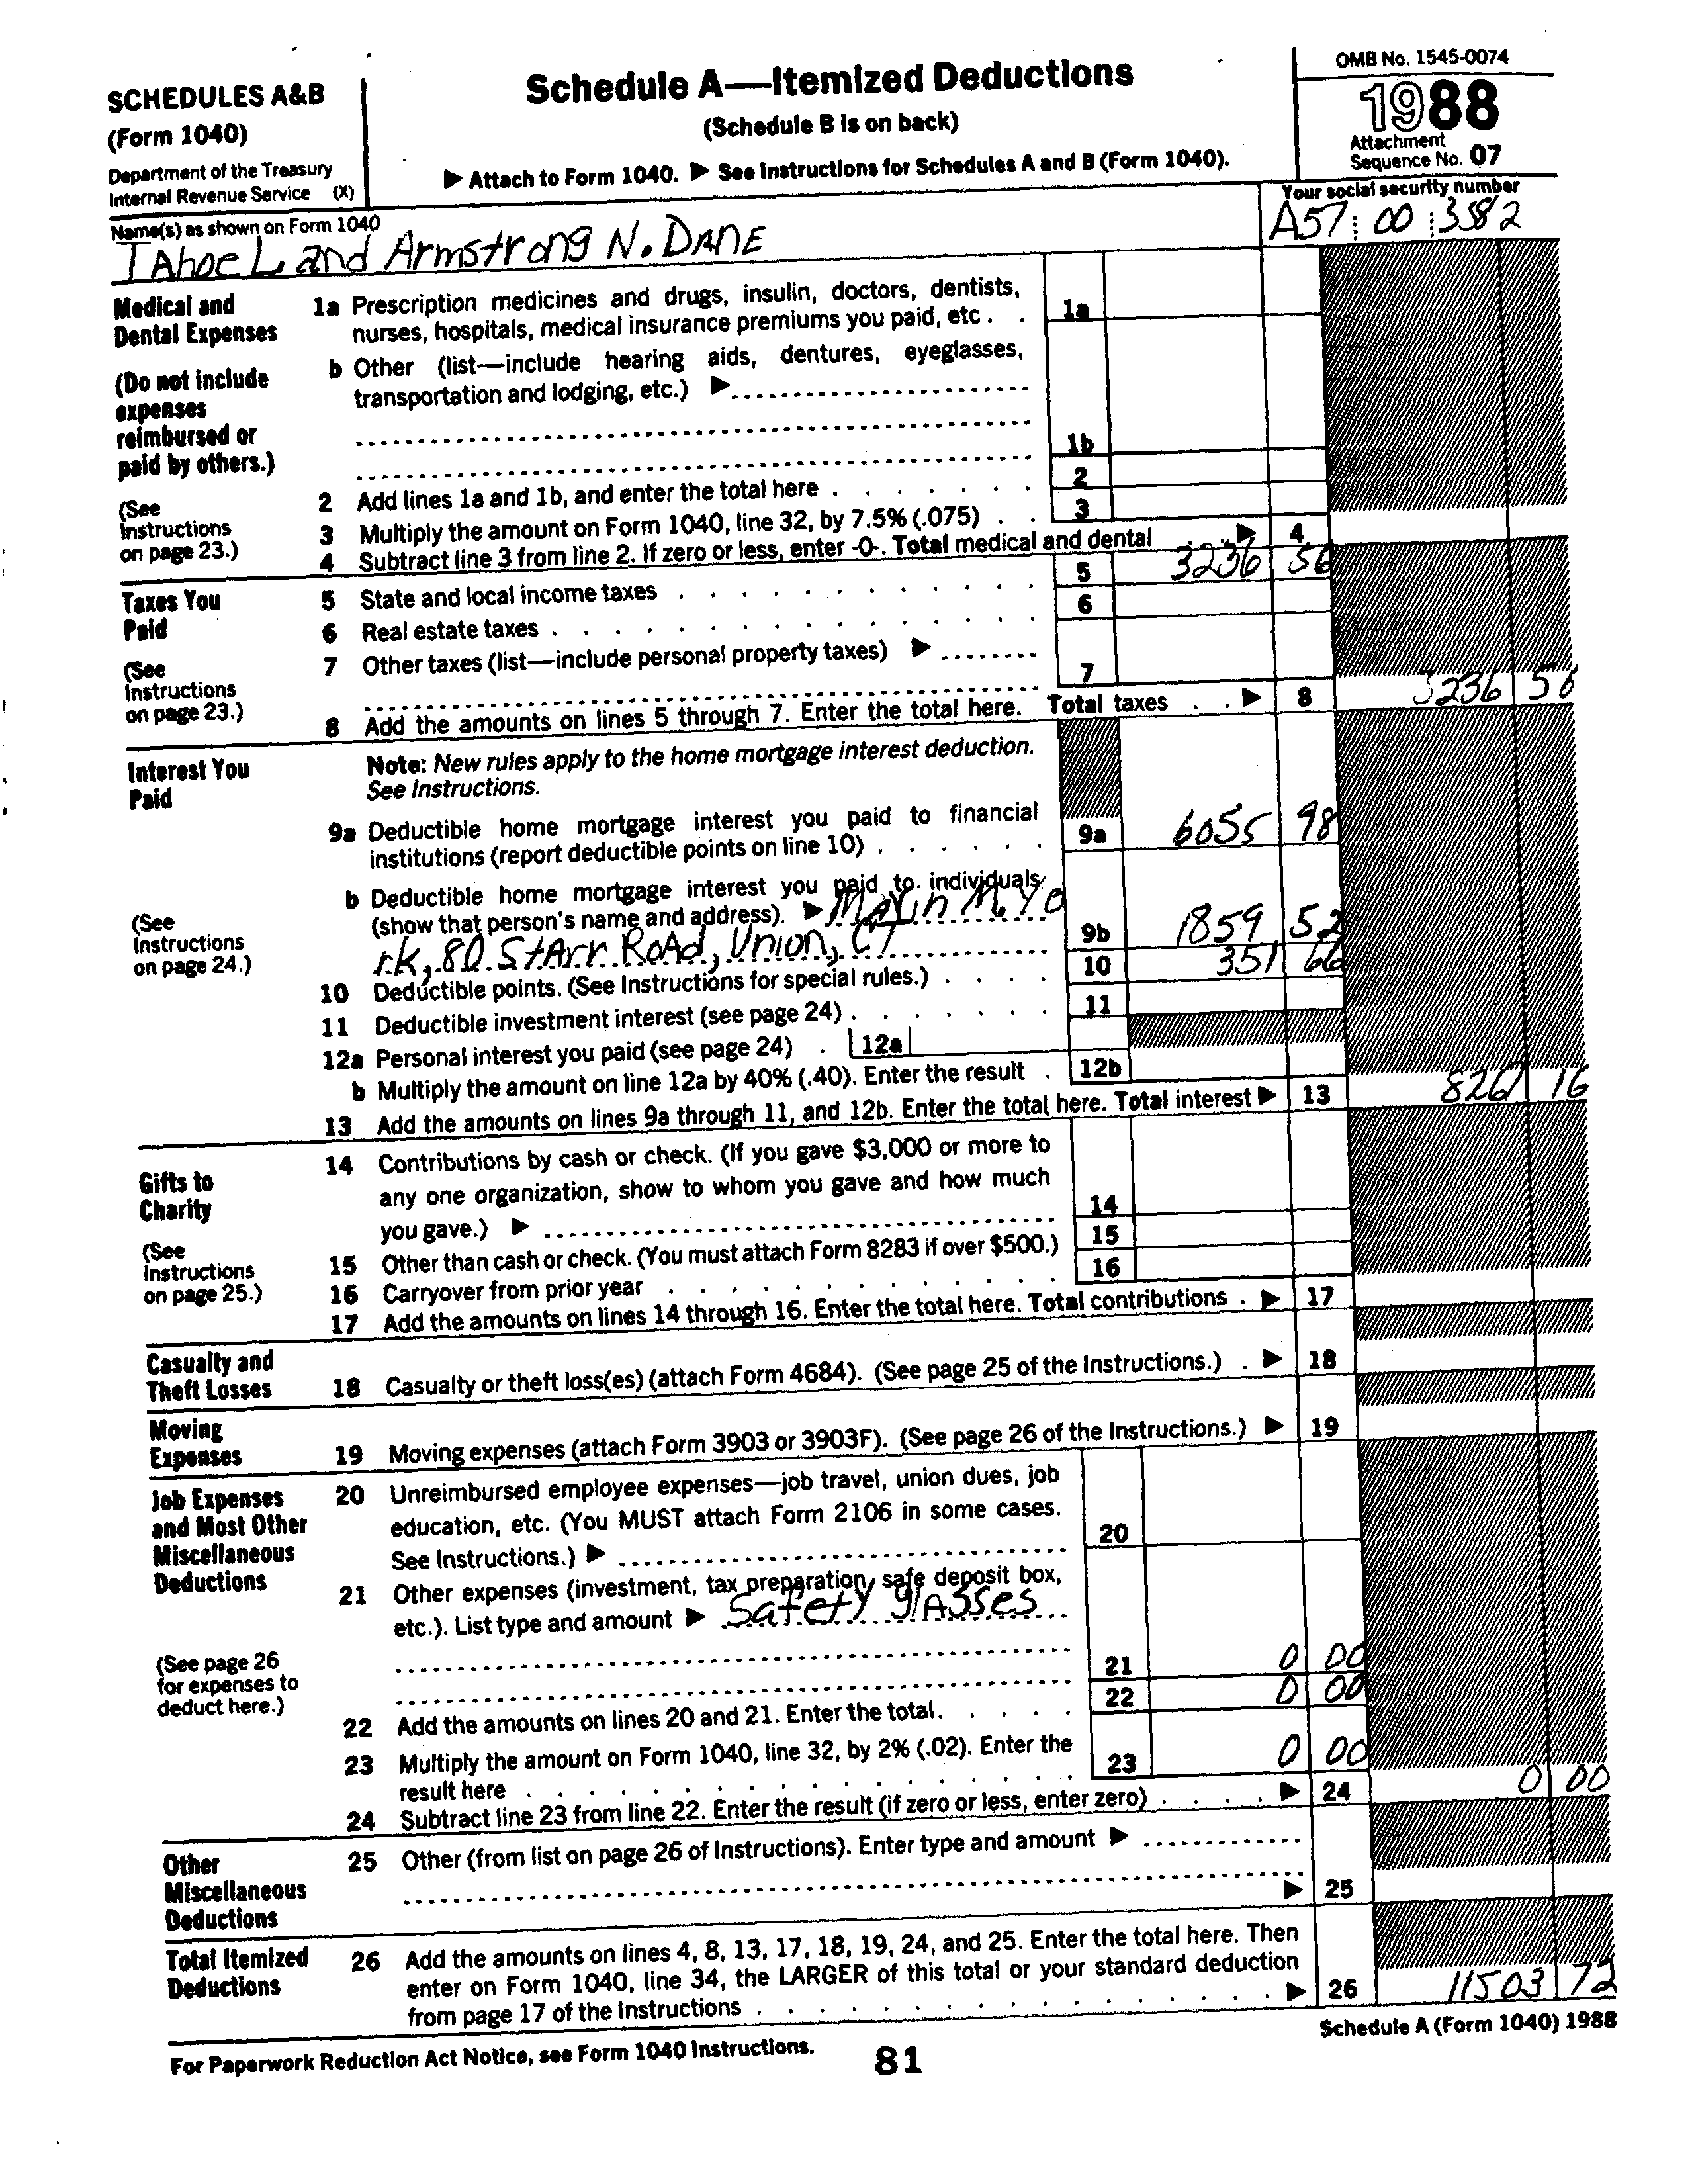 SCHEDULES A&B
(Form 1040)
Department of the Treasury
Internal Revenue Service (X)
Schedule A—Itemized Deductions
(Schedule B is on back)
▶ Attach to Form 1040. ▶ See Instructions for Schedules A and B (Form 1040).
OMB No. 1545-0074
1988
Attachment
Sequence No. 07
Name(s) as shown on Form 1040
TAhoe L and Armstrong N. DANE
Your social security number
A57 00 3582
Medical and
Dental Expenses
(Do not include
expenses
reimbursed or
paid by others.)
(See
Instructions
on page 23.)
1a Prescription medicines and drugs, insulin, doctors, dentists,
nurses, hospitals, medical insurance premiums you paid, etc . . 1a
b Other (list—include hearing aids, dentures, eyeglasses,
transportation and lodging, etc.) ▶
1b
2 Add lines 1a and 1b, and enter the total here . . . . . . . 2
3 Multiply the amount on Form 1040, line 32, by 7.5% (.075) . . 3
4 Subtract line 3 from line 2. If zero or less, enter -0-. Total medical and dental . . ▶ 4
Taxes You
Paid
(See
Instructions
on page 23.)
5 State and local income taxes . . . . . . . . . . . 5 3236 56
6 Real estate taxes . . . . . . . . . . . . . . 6
7 Other taxes (list—include personal property taxes) ▶
7
8 Add the amounts on lines 5 through 7. Enter the total here. Total taxes . . ▶ 8 3236 56
Interest You
Paid
(See
Instructions
on page 24.)
Note: New rules apply to the home mortgage interest deduction.
See Instructions.
9a Deductible home mortgage interest you paid to financial
institutions (report deductible points on line 10) . . . . . . 9a 6055 98
b Deductible home mortgage interest you paid to individuals
(show that person's name and address). ▶ Marin M. Yo
rk, 80 StArr RoAd, Union, CT 9b 1859 52
10 Deductible points. (See Instructions for special rules.) . . . . 10 351 66
11 Deductible investment interest (see page 24) . . . . . . . 11
12a Personal interest you paid (see page 24) . 12a
b Multiply the amount on line 12a by 40% (.40). Enter the result . 12b
13 Add the amounts on lines 9a through 11, and 12b. Enter the total here. Total interest ▶ 13 8267 16
Gifts to
Charity
(See
Instructions
on page 25.)
14 Contributions by cash or check. (If you gave $3,000 or more to
any one organization, show to whom you gave and how much
you gave.) ▶ 14
15 Other than cash or check. (You must attach Form 8283 if over $500.) 15
16 Carryover from prior year . . . . . . . . . . . . 16
17 Add the amounts on lines 14 through 16. Enter the total here. Total contributions . ▶ 17
Casualty and
Theft Losses
18 Casualty or theft loss(es) (attach Form 4684). (See page 25 of the Instructions.) . ▶ 18
Moving
Expenses
19 Moving expenses (attach Form 3903 or 3903F). (See page 26 of the Instructions.) ▶ 19
Job Expenses
and Most Other
Miscellaneous
Deductions
(See page 26
for expenses to
deduct here.)
20 Unreimbursed employee expenses—job travel, union dues, job
education, etc. (You MUST attach Form 2106 in some cases.
See Instructions.) ▶ 20
21 Other expenses (investment, tax preparation, safe deposit box,
etc.). List type and amount ▶ Safety glAsses
21 0 00
22 Add the amounts on lines 20 and 21. Enter the total. . . . . 22 0 00
23 Multiply the amount on Form 1040, line 32, by 2% (.02). Enter the
result here . . . . . . . . . . . . . . . . 23 0 00
24 Subtract line 23 from line 22. Enter the result (if zero or less, enter zero) . . . . ▶ 24 0 00
Other
Miscellaneous
Deductions
25 Other (from list on page 26 of Instructions). Enter type and amount ▶
▶ 25
Total Itemized
Deductions
26 Add the amounts on lines 4, 8, 13, 17, 18, 19, 24, and 25. Enter the total here. Then
enter on Form 1040, line 34, the LARGER of this total or your standard deduction
from page 17 of the Instructions . . . . . . . . . . . . . ▶ 26 11503 72
For Paperwork Reduction Act Notice, see Form 1040 Instructions.
81
Schedule A (Form 1040) 1988